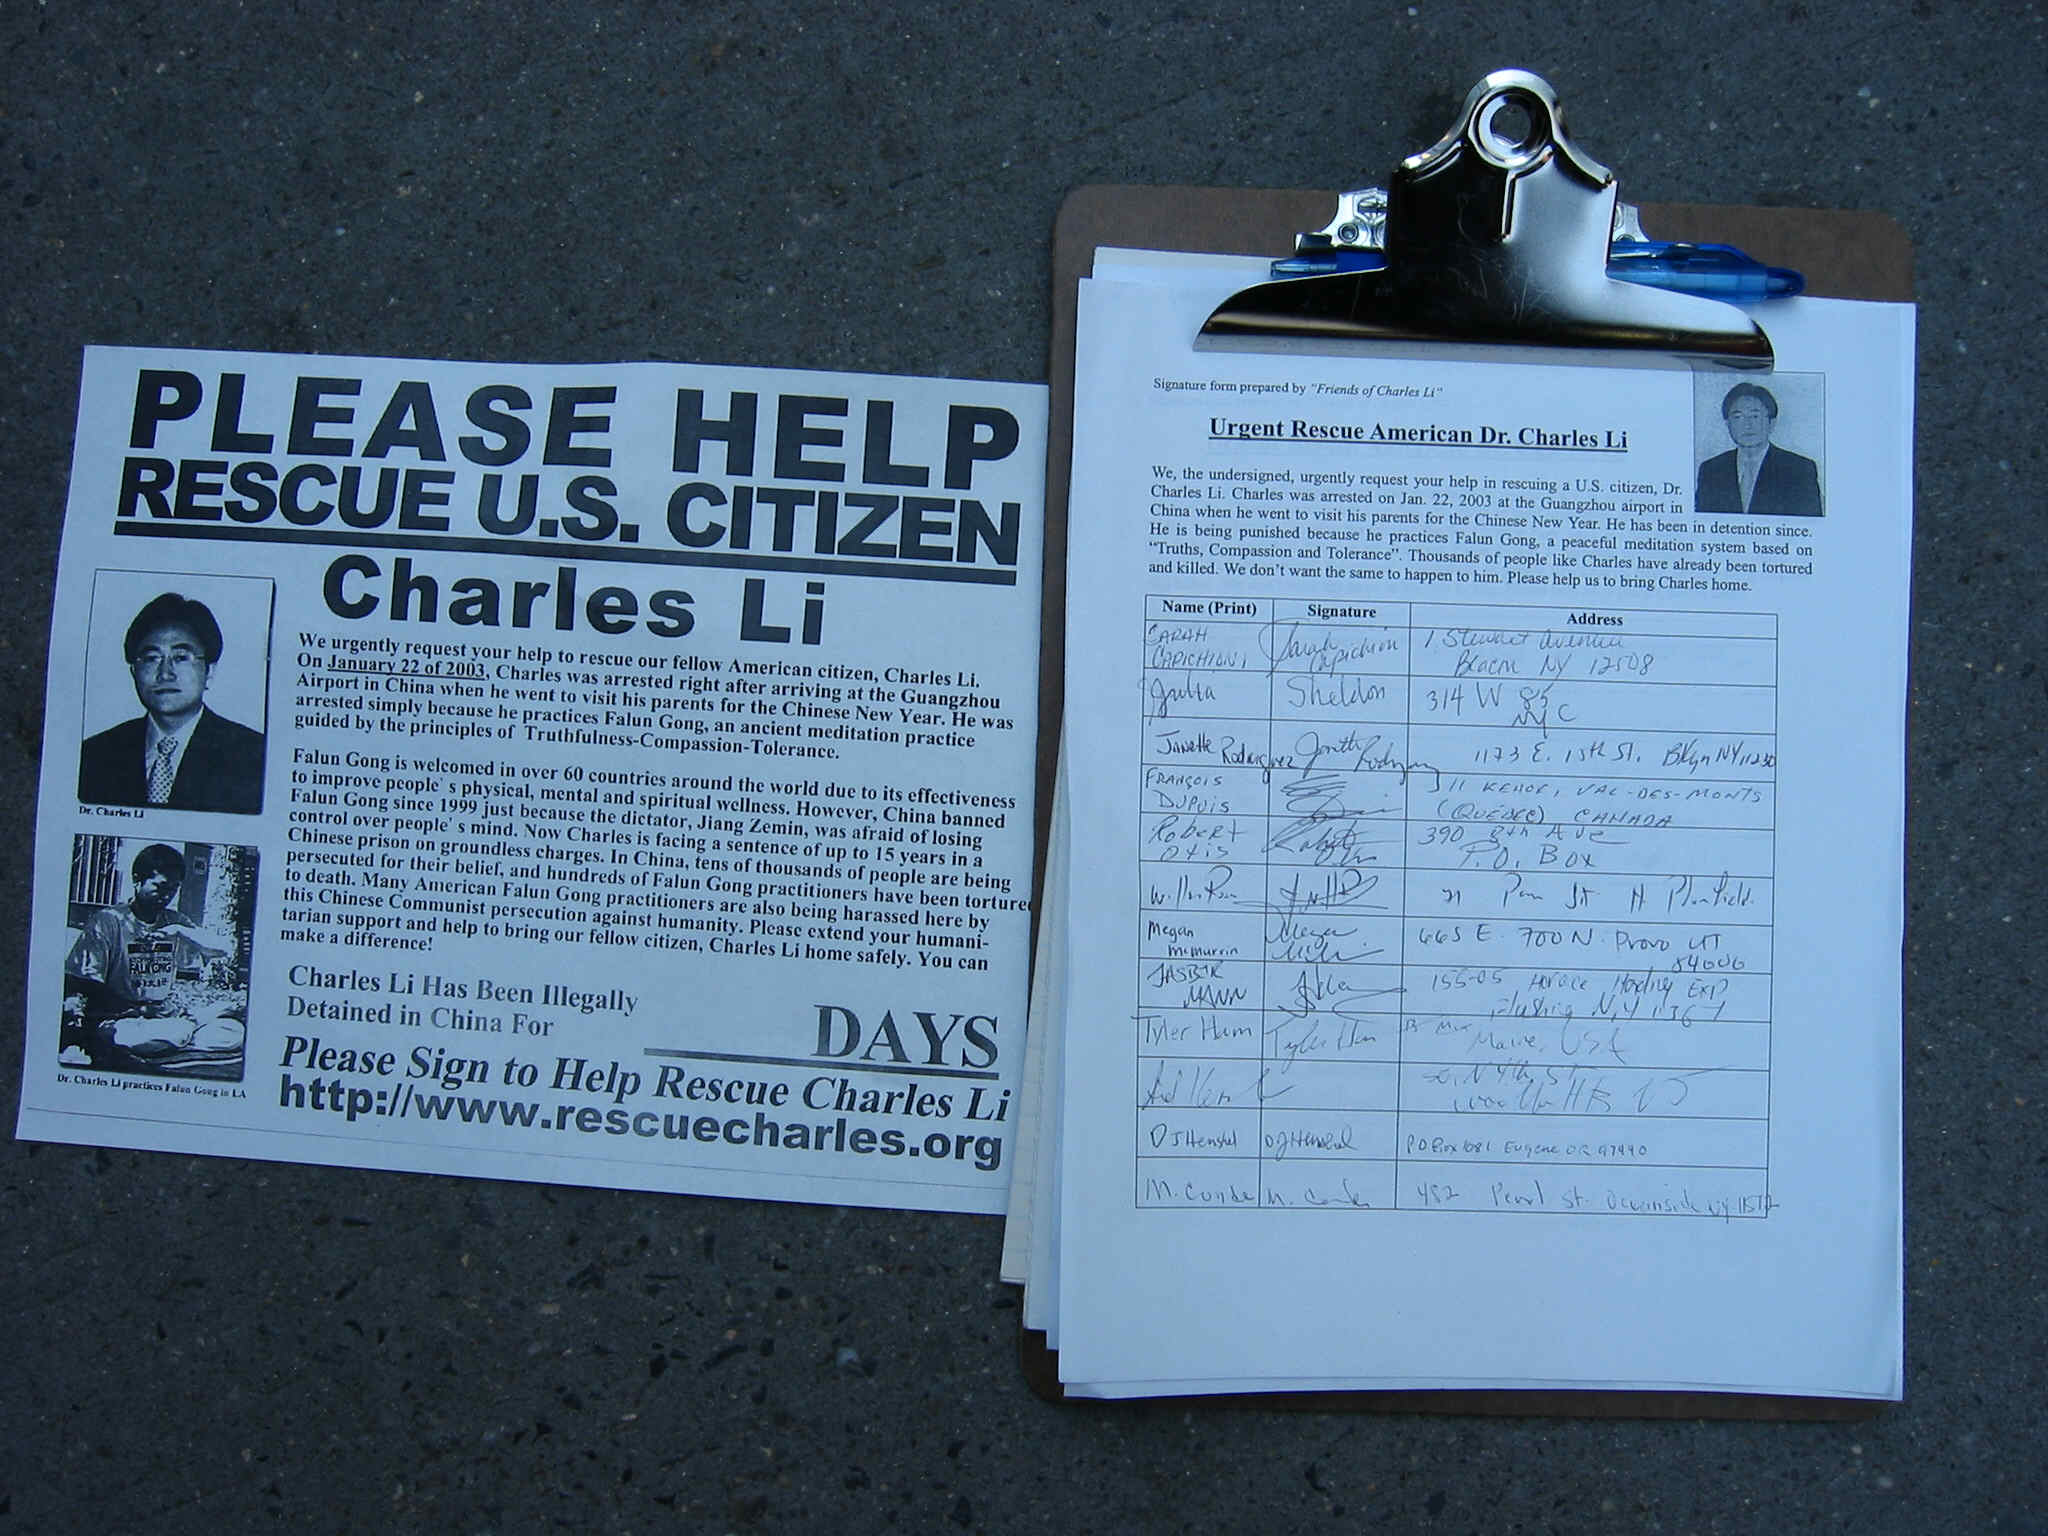 PLEASE HELP
RESCUE U.S. CITIZEN
Charles Li
We urgently request your help to rescue our fellow American citizen, Charles Li.
On January 22 of 2003, Charles was arrested right after arriving at the Guangzhou
Airport in China when he went to visit his parents for the Chinese New Year. He was
arrested simply because he practices Falun Gong, an ancient meditation practice
guided by the principles of Truthfulness-Compassion-Tolerance.
Dr. Charles Li
Falun Gong is welcomed in over 60 countries around the world due to its effectiveness
to improve people's physical, mental and spiritual wellness. However, China banned
Falun Gong since 1999 just because the dictator, Jiang Zemin, was afraid of losing
control over people's mind. Now Charles is facing a sentence of up to 15 years in a
Chinese prison on groundless charges. In China, tens of thousands of people are being
persecuted for their belief, and hundreds of Falun Gong practitioners have been tortured
to death. Many American Falun Gong practitioners are also being harassed here by
this Chinese Communist persecution against humanity. Please extend your humani-
tarian support and help to bring our fellow citizen, Charles Li home safely. You can
make a difference!
FALUN GONG
Dr. Charles Li practices Falun Gong in LA
Charles Li Has Been Illegally
Detained in China For DAYS
Please Sign to Help Rescue Charles Li
http://www.rescuecharles.org
Signature form prepared by "Friends of Charles Li"
Urgent Rescue American Dr. Charles Li
We, the undersigned, urgently request your help in rescuing a U.S. citizen, Dr.
Charles Li. Charles was arrested on Jan. 22, 2003 at the Guangzhou airport in
China when he went to visit his parents for the Chinese New Year. He has been in detention since.
He is being punished because he practices Falun Gong, a peaceful meditation system based on
"Truths, Compassion and Tolerance". Thousands of people like Charles have already been tortured
and killed. We don't want the same to happen to him. Please help us to bring Charles home.
Name (Print) Signature Address
SARAH Sarah 1 Stewart Avenue
CAPICHIONI Capichioni Beacon NY 12508
Julia Sheldon 314 W 85
NYC
Janette Rodriguez 1173 E. 15th St. Bklyn NY 11230
FRANÇOIS 11 KEHOE, VAL-DES-MONTS
DUPUIS (QUÉBEC) CANADA
Robert Robert 390 8th Ave
Otis Otis P.O. Box
St
Megan Megan 665 E. 700 N. Provo UT
McMurrin
JASBIR 155-05 Horace Harding Exp
MANN Flushing N.Y
Tyler Ham Tyler Ham
Maine, USA
DJ Henshel DJ Henshel PO Box 1081 Eugene OR 97440
M. Conde M. Conde 482 Pearl St. Oceanside NY 11572